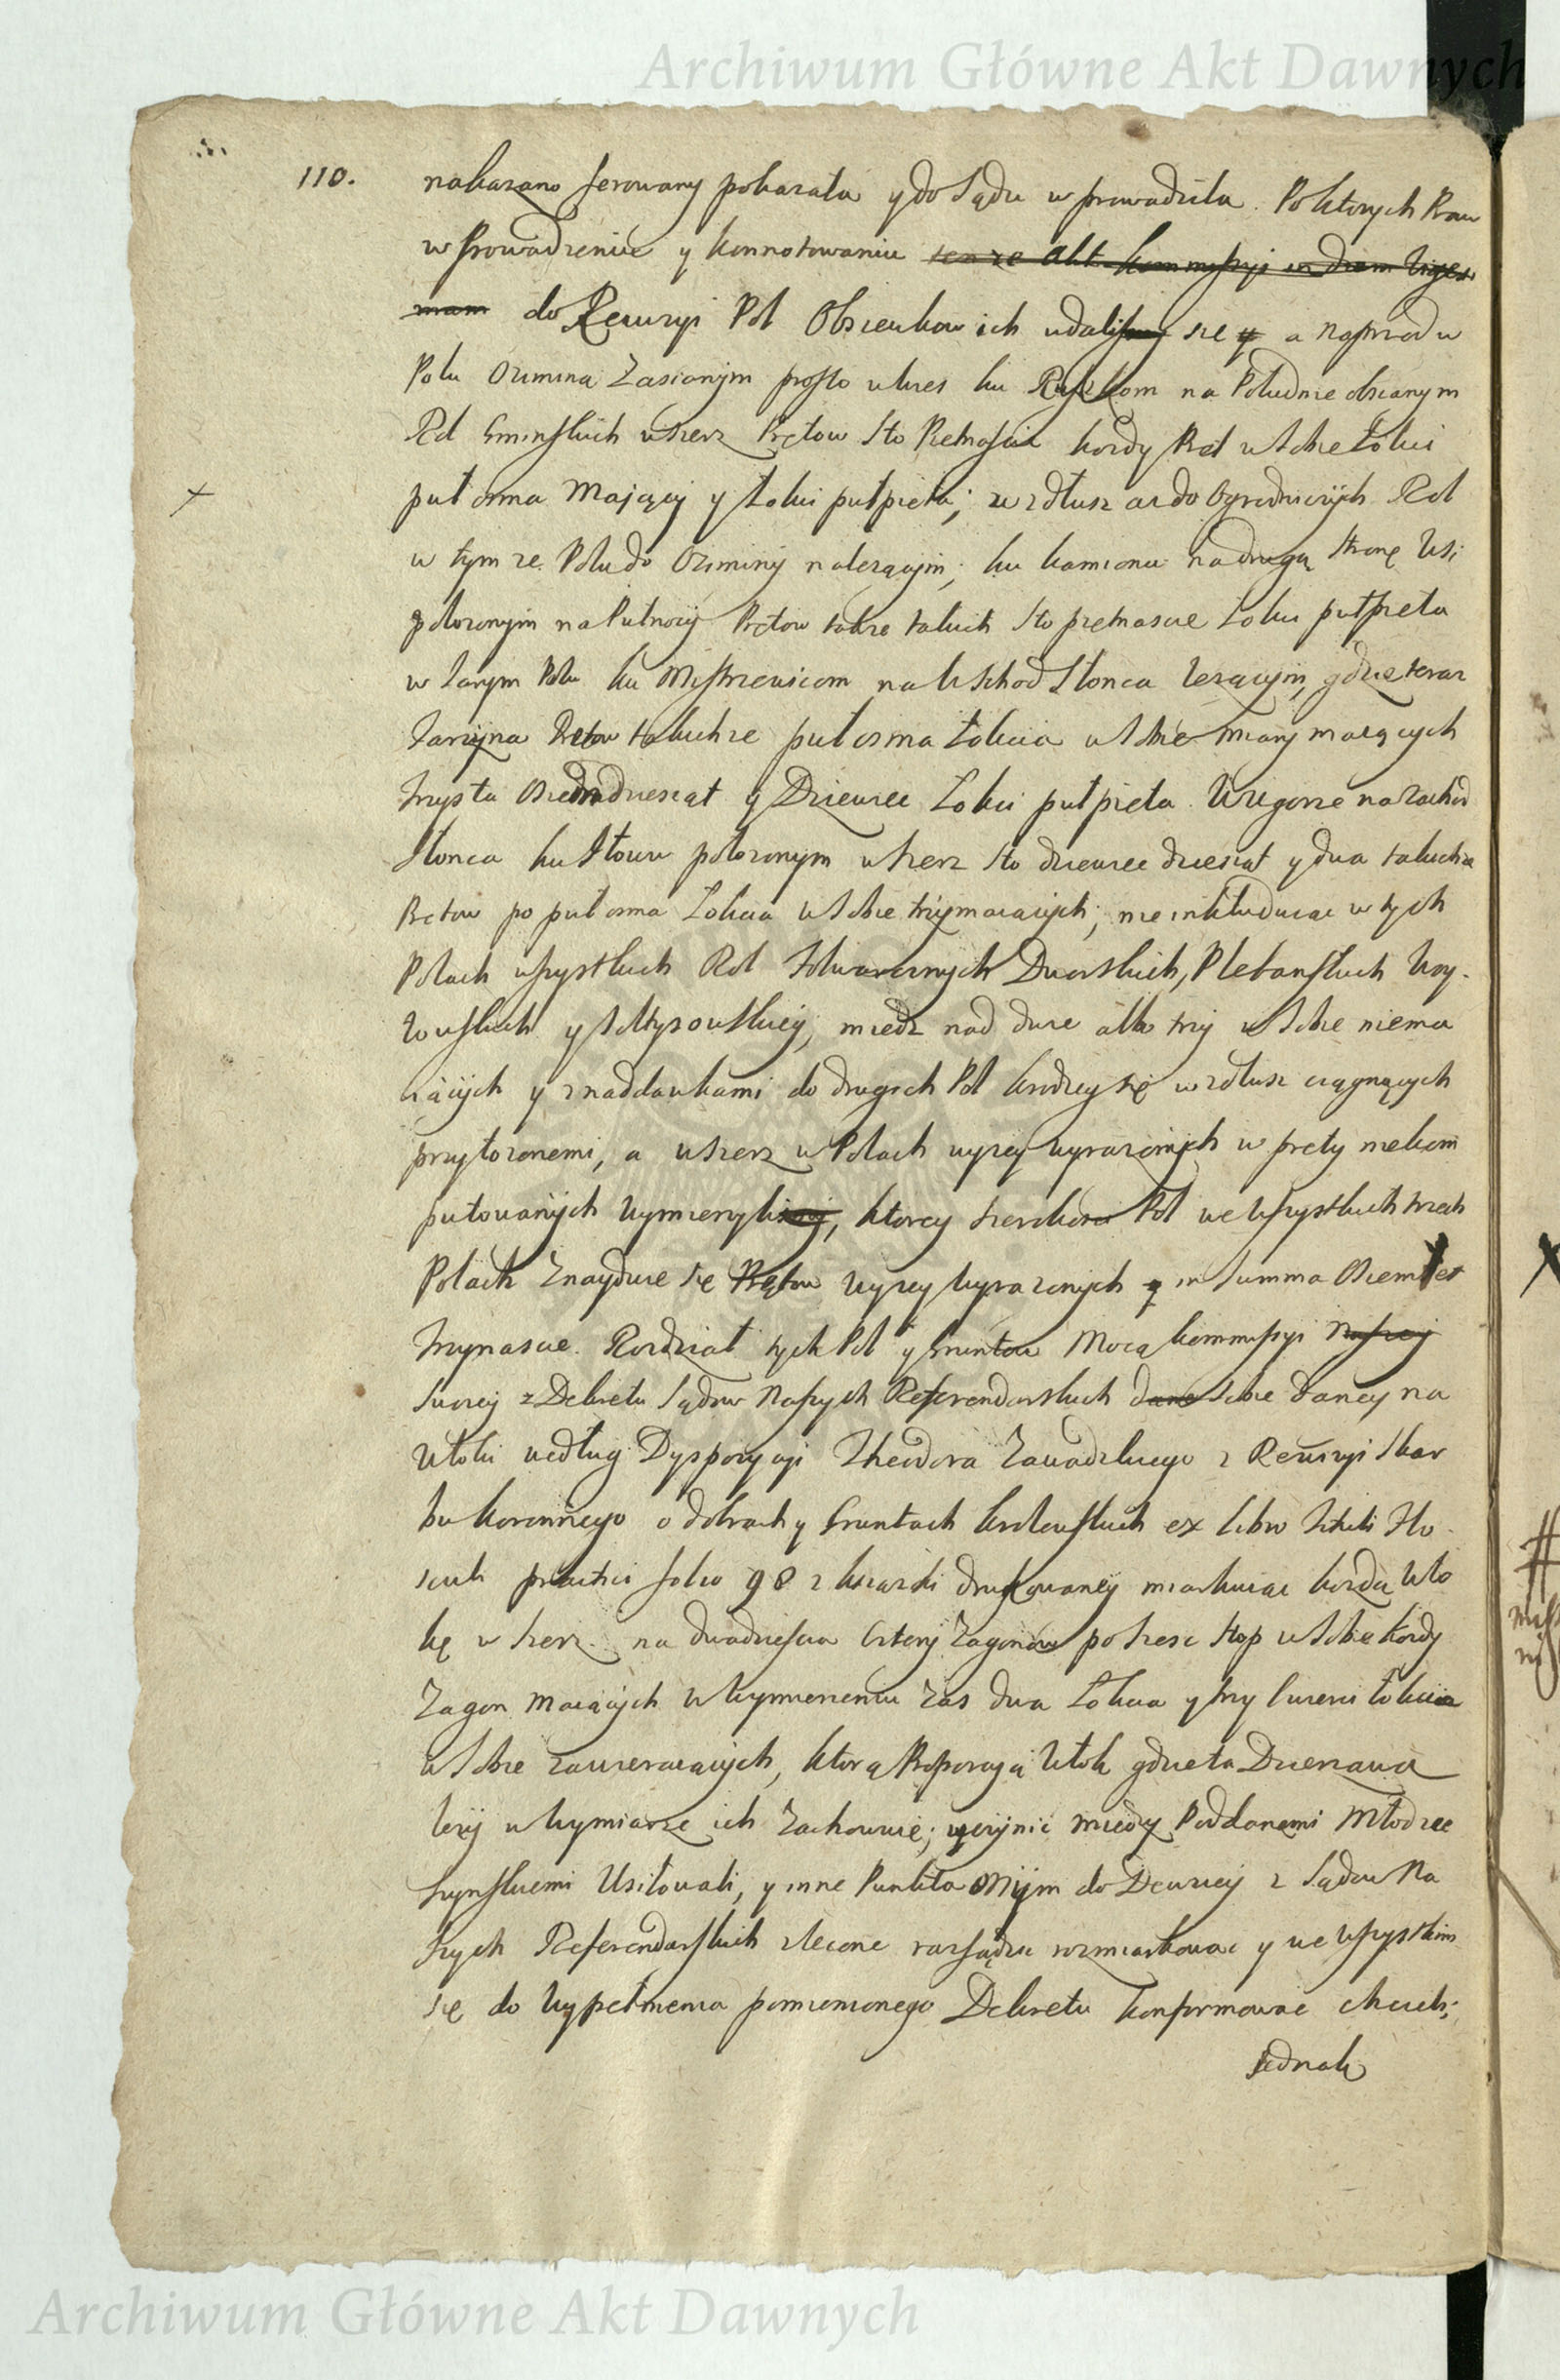 Archiwum Główne Akt Dawnych
110.
nakazano ferowany pokazała y do Sądu wprowadziła. Po ktorych Praw
wprowadzeniu y konnotowaniu tenze Akt Kommyssyi in diem Vigesi
mam do Rewizyi Pol Obsiewkow ich udali się y a naprzod w
Polu Ozimina Zasianym prosto wkres ku Ruszkom na Południe obsianym
Rol Gminskich wszerz Prętow Sto Piętnascie kozdy Pręt w Sobie Łokci
puł osma Maiący y Łokci pułpięta; w zdłusz az do Ogrodniczych Rol
w tymze Polu do Oziminy nalezącym; ku kamionu na drugą stronę Wsi
położonym na Pułnocy Prętow takze takich Sto piętnascie Łokci pułpięta
w Jarym Polu ku Mistrzewicom na Wschod Słonca lezącym, gdzie teraz
Jarzyna Prętow takichze puł osma Łokcia w Sobie miary maiących
trzysta Osiemdziesiąt y Dziewięc Łokci pułpięta. W Ugorze na Zachod
Słonca ku położonym wszerz Sto dziewięc dziesiąt y dwa takichze
Prętow po puł osma Łokcia w Sobie trzymaiących; nie inkluduiąc w tych
Polach wszystkich Rol Folwarcznych Dworskich, Plebanskich Woy-
towskich y Sołtysowskiey, miedz nad dwie albo trzy w Sobie niema
iących y z naddawkami do drugich Pol krodzey się w zdłusz ciągnących
przyłozonemi, a wszerz w Polach wyzey wyrazonych w pręty niekom
putowanych Wymierzyli, ktorey szerokosci Pol we Wszystkich trzech
Polach Znayduie się Prętow wyzey wyrazonych in Summa Osiemset
trzynascie. Rozdział tych Pol y Gruntow Mocą Kommyssyi Naszey
Swoiey z Dekretu Sądow Naszych Referendarskich dane Sobie daney na
Włoki według Dyspozycyi Theodora Zawadzkiego z Rewizyi Skar
bu Koronnego o dobrach y Gruntach krolewskich ex libro Tituli Flo-
sculi practici folio 98 z ksiąszki drukowaney miarkuiąc kozdą Wło
kę w szerz na dwadziescia Cztery Zagonow po szesc stop w Sobie kozdy
Zagon maiących w Wymierzeniu Zas dwa Łokcia y trzy Cwierci łokcia
w Sobie zawieraiących, ktorą Proporcyą Włok gdzie ta Dzierzawa
lezy w Wymiarze ich Zachowuie; uczynic między Poddanemi Młodzie
szynskiemi Usiłowali, y inne Punkta onym do Decyzyi z Sądow Na
szych Referendarskich zlecone rozsądzic rozmiarkowac y we Wszystkim
się do Wypełnienia pomienionego Dekretu konformowac chcieli;
Jednak
Archiwum Główne Akt Dawnych